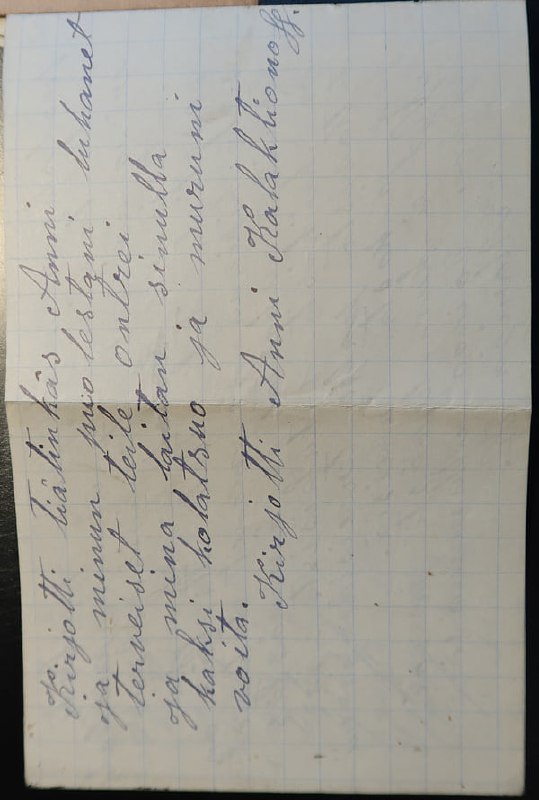 Kirjotti tiätinkäs Anni
ja minun puolestani tuhanet
terveiset teile ontrei
ja mina laitan sinulla
kaksi kolatsuo ja murumi
voita.
Kirjotti Anni Kalaktionoff.